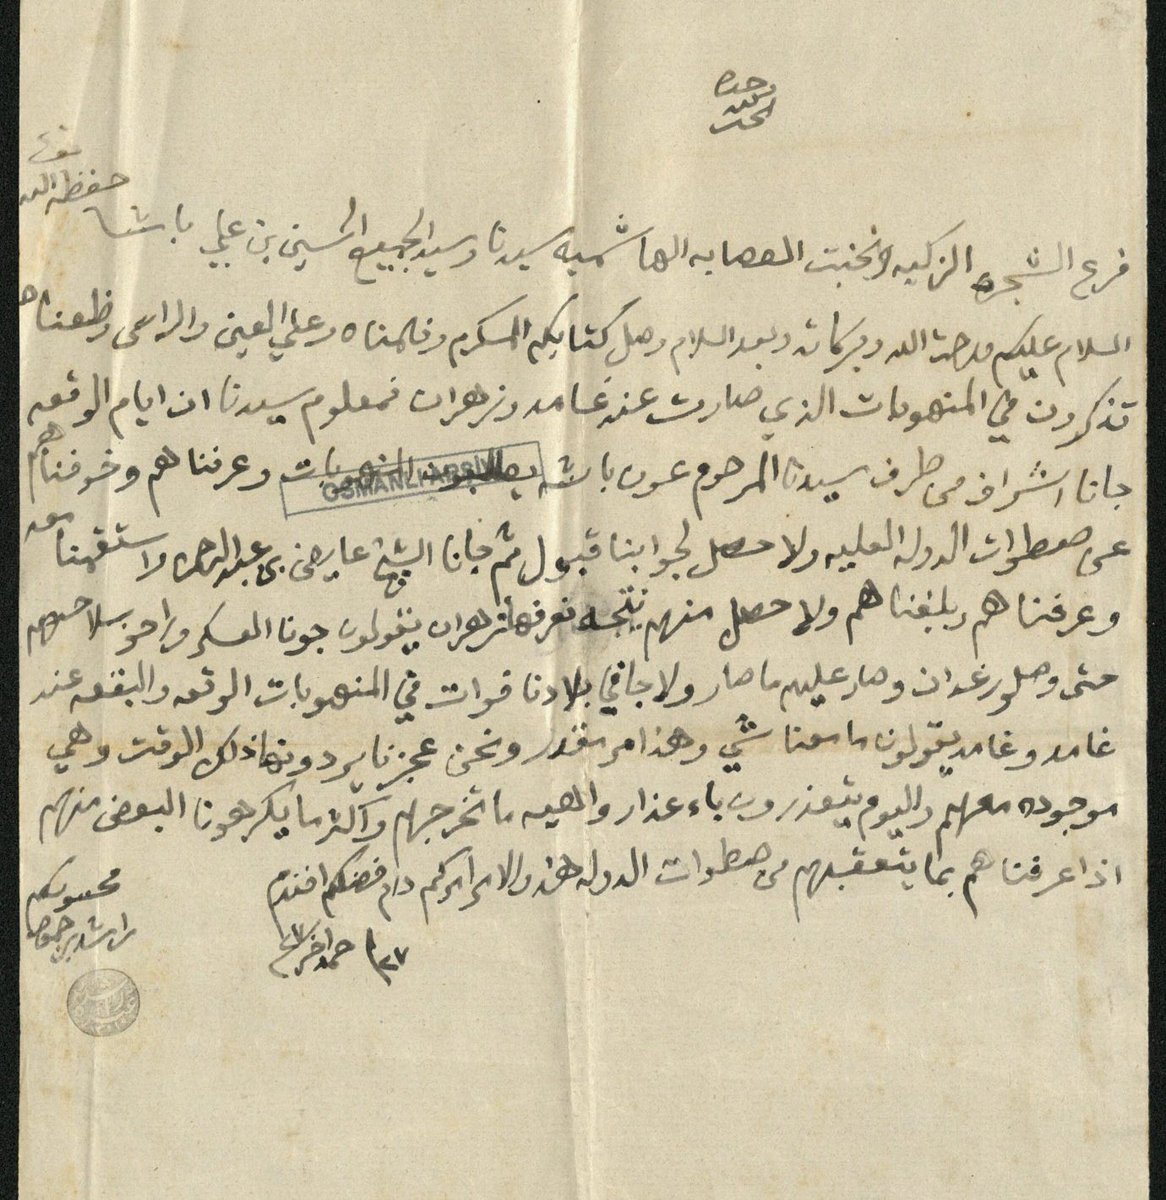 الحمد لله وحده
فرع الشجره الزكيه ونخبت العصابه الهاشميه سيدنا وسيد الجميع الحسين بن علي باشا حفظه الله
السلام عليكم ورحمت الله وبركاته وبعد السلام وصل كتابكم المكرم وفهمناه وعلي العين والراس وظعناه
تذكرون في المنهوبات الذي صارت عند غامد وزهران فمعلوم سيدنا ان ايام الوقعه
جانا اشراف من طرف سيدنا المرحوم عون باشه يطلبون المنهوبات وعرفناهم وخوفناهم
من صطوات الدوله العليه ولا حصل لجوابنا قبول ثم جانا الشيخ عايض بن عبد الرحمن واستقمنا معه
وعرفناهم وبلغناهم ولا حصل منهم نتيجه زهران يقولون جونا العسكر وراحو بسلاحهم
حتى وصلو رغدان وصار عليهم ما صار ولا جا في بلادنا فوات في المنهوبات الوقعه والبقعه عند
غامد وغامد يقولون ما معنا شي وهذا امر مقدر ونحن عجزنا يردونها ذلك الوقت وهي
موجوده معهم واليوم يتعذرون باعذار واهيه ما تخرجهم واكثر ما يكرهونا البعض منهم
اذا عرفناهم بما يتعقبهم من صطوات الدوله هذا والامر امركم دام فضلكم افندم
٢٧ جمد اخر
محسوبكم
راشد بن جمعان
OSMANLI ARŞİVİ